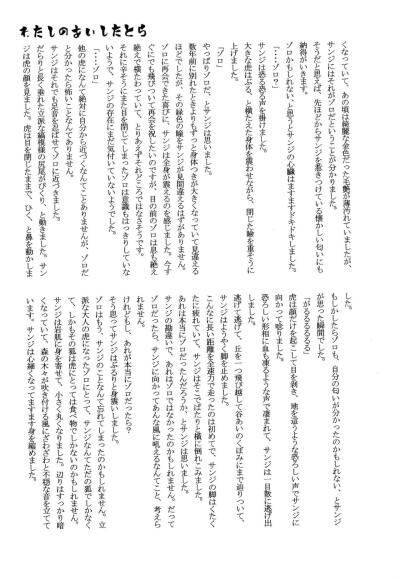 わたしのあいしたとら
くなっていて、あの頃は綺麗な金色だった毛艶が薄汚れていましたが、
サンジにはそれがゾロだということが分かりました。
そうだと思えば、先ほどからサンジを惹きつけている懐かしい匂いにも
納得がいきます。
「・・・ゾロ？」
ゾロかもしれない、と思うとサンジの心臓はますますドキドキしました。
サンジは恐る恐る声を掛けました。
大きな虎はぶる、と横たえた身体を震わせながら、閉じた瞼を重そうに
上げました。
「ゾロ」
やっぱりゾロだ、とサンジは思いました。
数年前に別れたときよりもずっと身体つきが大きくなっていて見違える
ほどでしたが、その緑色の瞳をサンジが見間違えるはずがありません。
ゾロに再会できた喜びに、サンジは全身が震えるのを感じました。今す
ぐにでも飛びついて再会を祝したいのですが、目の前のゾロは息も絶え
絶えで横たわっていて、とりあえずそれどころではなさそうです。
それに辛そうにまた目を閉じてしまったゾロは意識もはっきりしていな
いようで、サンジの存在にまだ気付いていないようでした。
「・・・ゾロ」
他の虎になんて絶対に自分から近づくなんてことありませんが、ゾロだ
と分かったら怖いことなんてありません。
サンジはそれでも足音を忍ばせてゾロに近づきました。
だらりと長く垂れた立派な縞模様の尻尾がぴくり、と動きました。サン
ジは虎の顔を見ました。虎は目を閉じたままで、ひく、と鼻を動かしま
した。
もしかしたらゾロも、自分の匂いが分かったのかもしれない、とサンジ
が思った瞬間でした。
「がるるるるるる」
虎は顔だけを起こして目を剥き、地を這うような恐ろしい声でサンジに
向かって唸りました。
恐ろしい形相に血も凍るような声で凄まれて、サンジは一目散に逃げ出
しました。
逃げて逃げて、丘を一つ飛び越して谷あいのくぼみにまで辿りついて、
サンジはようやく脚を止めました。
こんなに長い距離を全速力で走ったのは初めてで、サンジの脚はくたく
たに疲れていて、サンジはそこでばたりと横に倒れこみました。
あれは本当にゾロだったんだろうか、とサンジは思いました。
サンジの勘違いで、あれはゾロではなかったのかもしれません。だって
ゾロだったら、サンジに向かってあんな風に吼えるなんてこと、考えら
れません。
けれどもし、あれが本当にゾロだったら？
そう思ってサンジはぶるりと身震いしました。
ゾロはもう、サンジのことなんて忘れてしまったのかもしれません。立
派な大人の虎になったゾロにとって、サンジなんてただの狐でしかなく
て、しかもその狐は虎にとっては食べ物でしかないのかもしれません。
サンジは岩肌に身を寄せて、小さく丸くなりました。辺りはすっかり暗
くなっていて、森の木々が吹き付ける風にざわざわと不穏な音を立てて
います。サンジは心細くなってますます身を縮めました。